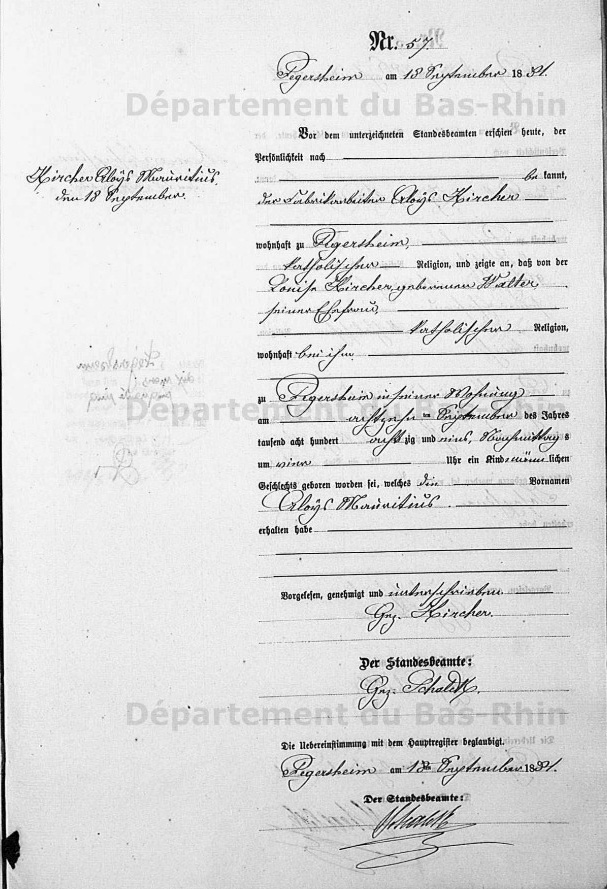 Nr. 57.
Fegersheim am 18 September 1881.
Département du Bas-Rhin
Vor dem unterzeichneten Standesbeamten erschien heute, der
Persönlichkeit nach
be kannt,
Kircher Aloÿs Mauritius.
den 18 September.
der Fabrikarbeiter Aloÿs Kircher
wohnhaft zu Fegersheim,
katholischer Religion, und zeigte an, daß von der
Louise Kircher, geborenen Walter
seiner Ehefrau,
katholischer Religion,
wohnhaft bei ihm
zu Fegersheim in seiner Wohnung
Département du Bas-Rhin
am achtzehnten September des Jahres
tausend acht hundert achtzig und eins, Nachmittags
um vier Uhr ein Kind männlichen
Geschlechts geboren worden sei, welches den Vornamen
Aloÿs Mauritius
erhalten habe
Vorgelesen, genehmigt und unterschrieben
Gez. Kircher.
Der Standesbeamte:
Gez. Schalck.
Département du Bas-Rhin
Die Uebereinstimmung mit dem Hauptregister beglaubigt.
Fegersheim am 18ten September 1881.
Der Standesbeamte:
Schalck